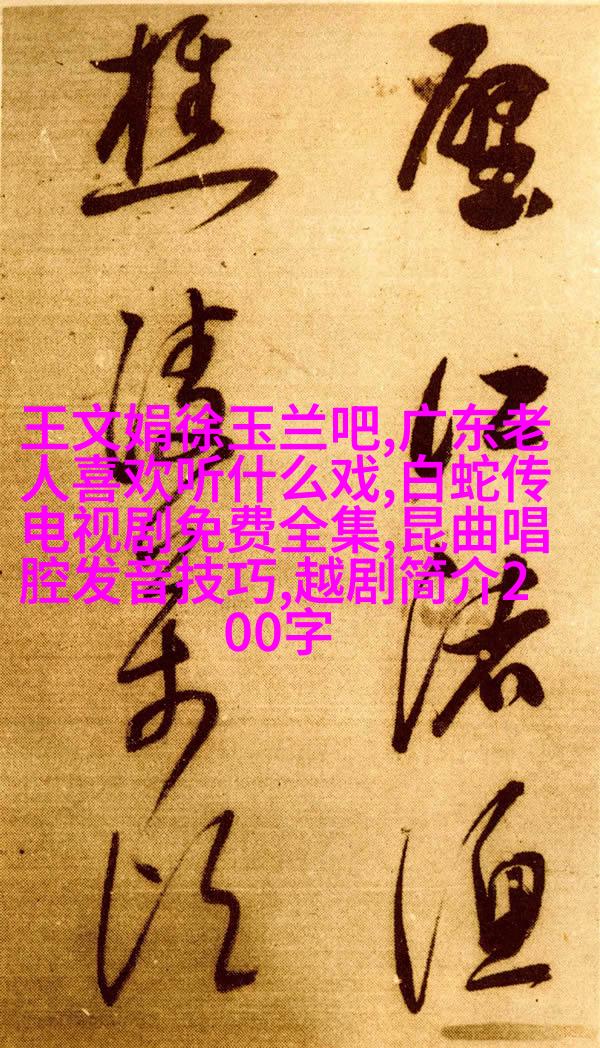 王文娟徐玉兰吧,广东老
人喜欢听什么戏,白蛇传
电视剧免费全集,昆曲唱
腔发音技巧,越剧简介2
00字
江渚漁
樵